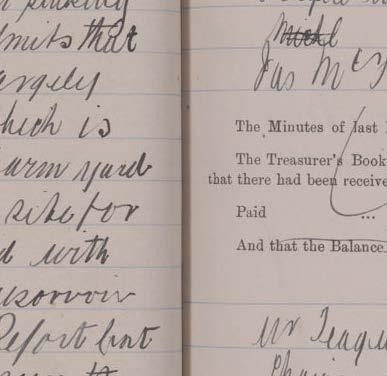 dmits that
argely
which is
arm yard
site for
d with
eservoir
Report but
Jas McS
The Minutes of last
The Treasurer's Book
that there had been receive
Paid ...
And that the Balance
Mr Teague
Chair